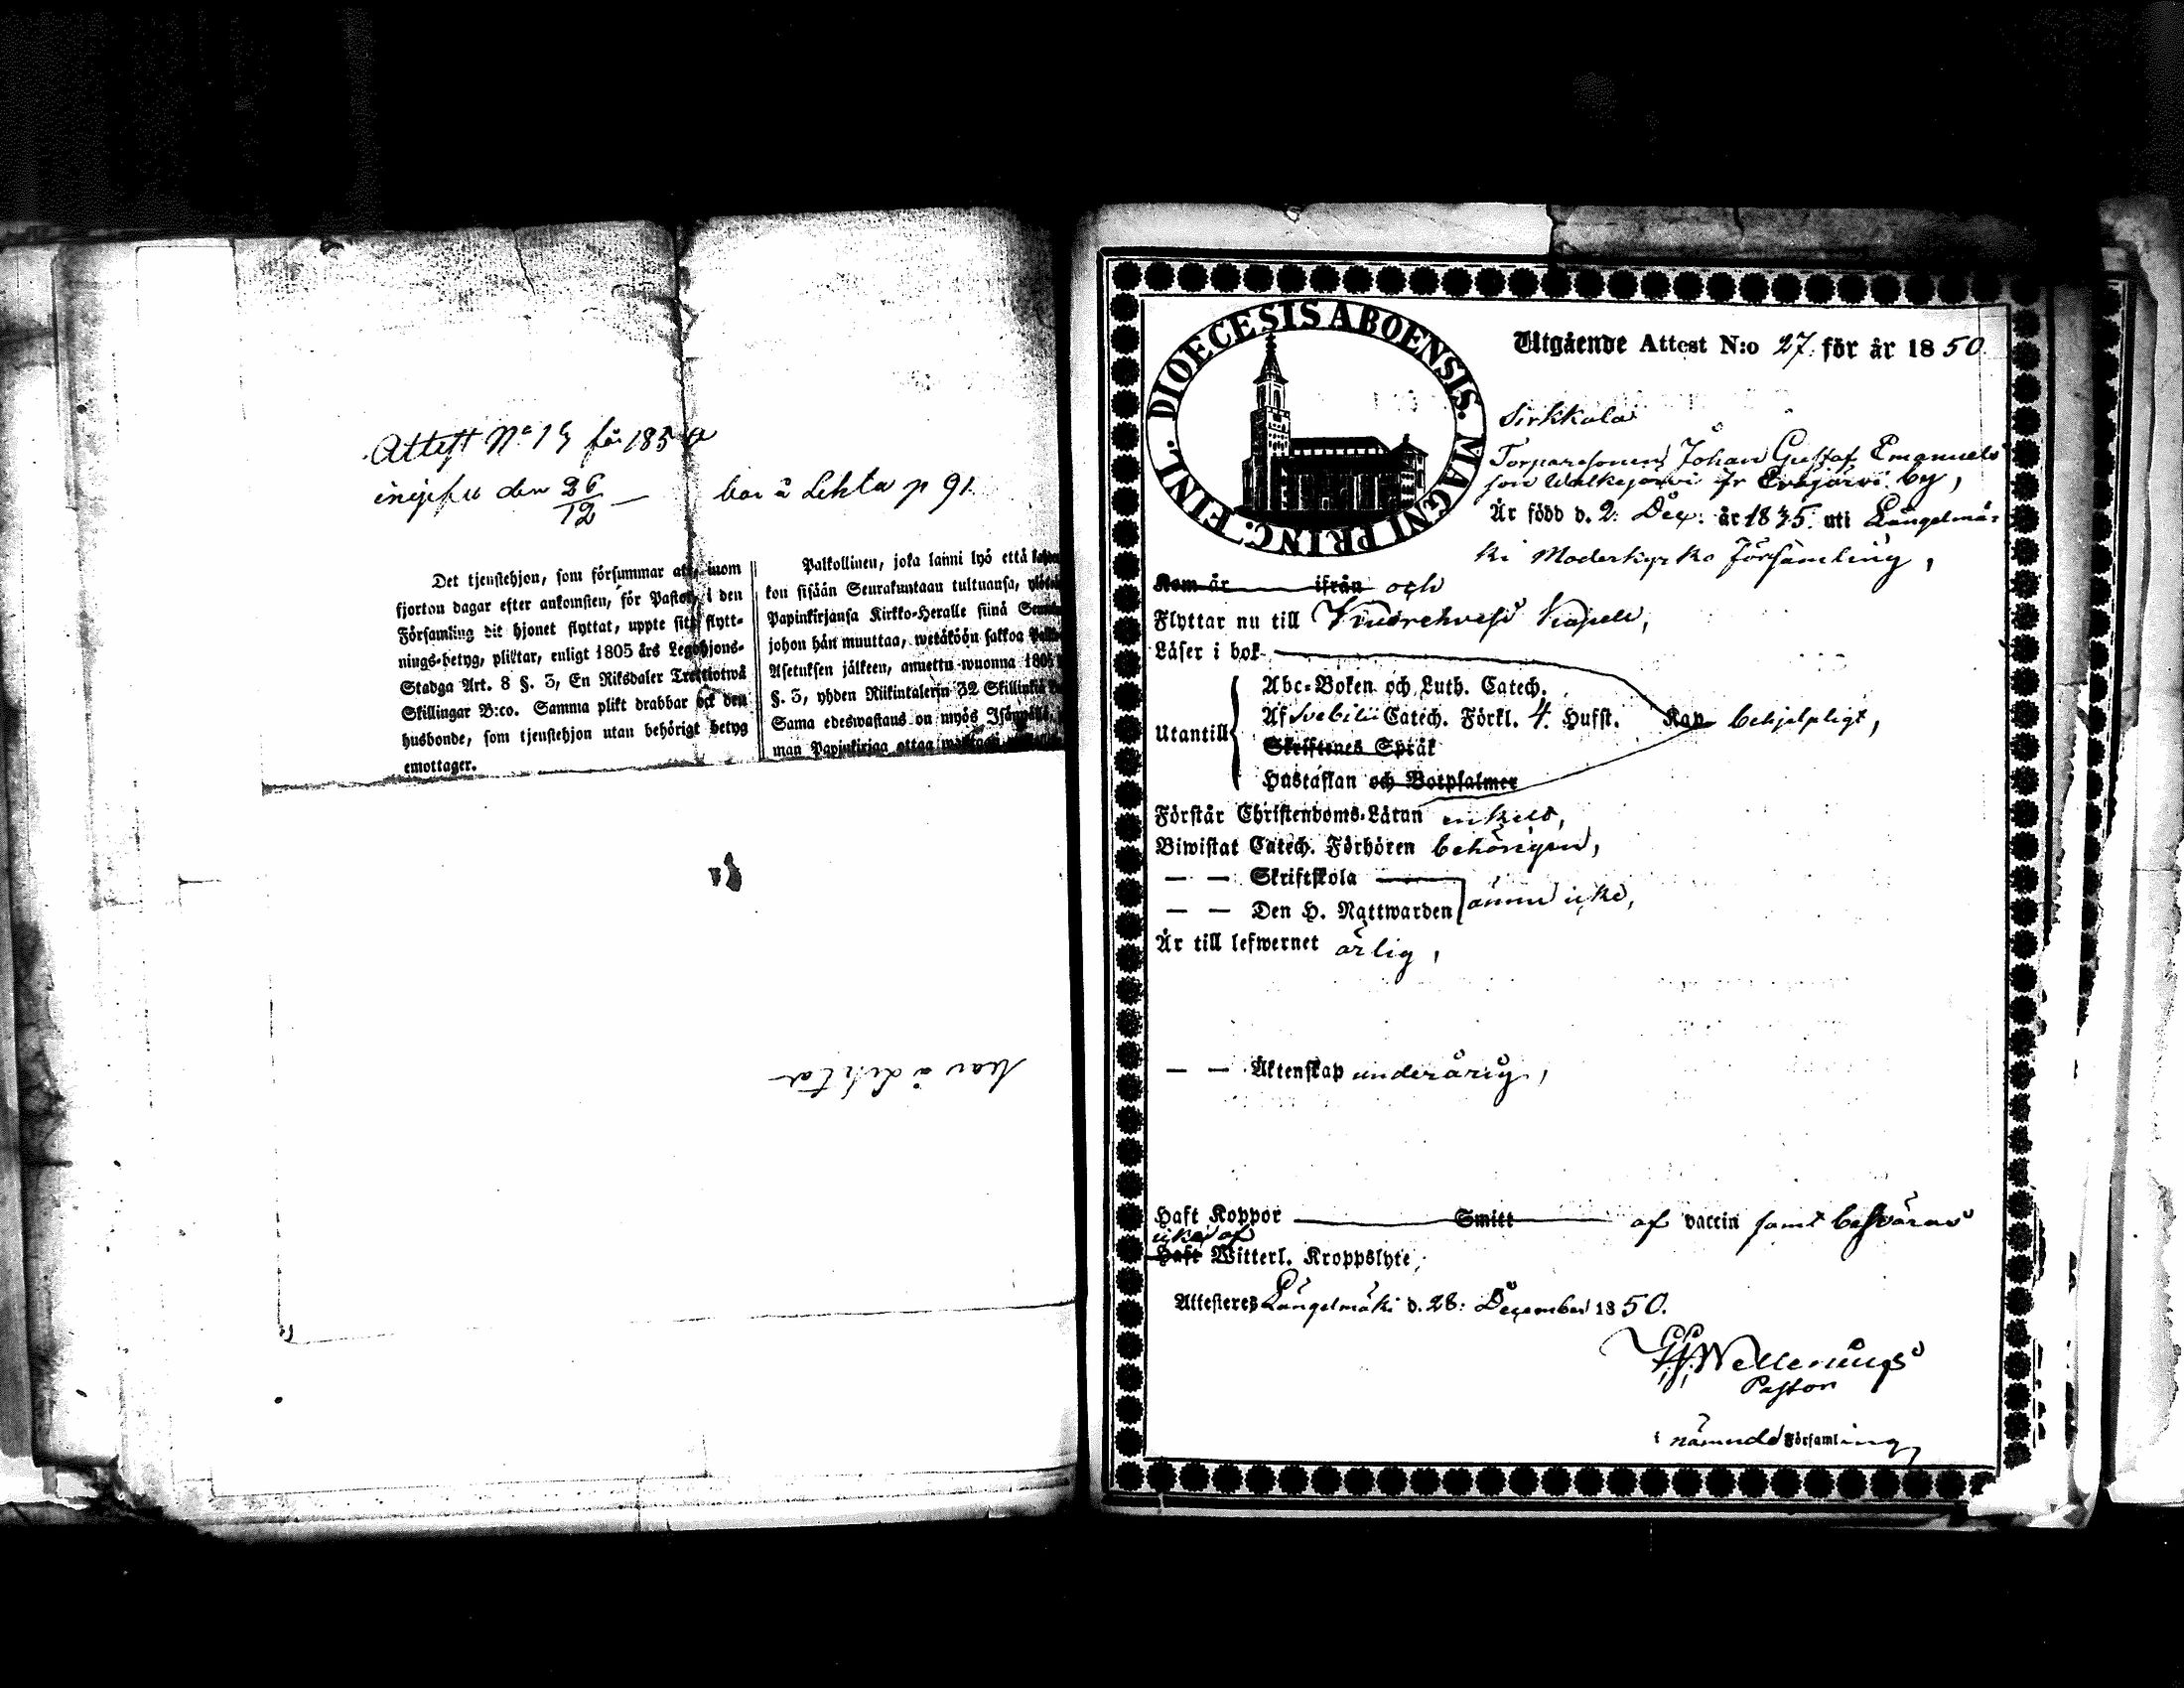 Attest No 19 för 1850
ingifvit den 26/12 — bor å Lehta p 91.
Det tjenstehjon, som försummar att, inom
fjorton dagar efter ankomsten, för Pastor, i den
Församling dit hjonet flyttat, uppte sitt flytt-
nings-betyg, pliktar, enligt 1805 års Legohjons-
Stadga Art. 8 §. 3, En Riksdaler Trettiotwå
Skillingar B:co. Samma plikt drabbar ock den
husbonde, som tjenstehjon utan behörigt betyg
emottager.
Palkollinen, joka laimi lyö että
kon sisään Seurakuntaan tultuansa,
Papinkirjansa Kirkko-Heralle siinä
johon hän muuttaa, wetäköön sakkoa
Asetuksen jälkeen, annettu wuonna 1805
§. 3, yhden Riikintalerin 32 Skillinkiä
Sama edeswastaus on myös
man Papinkirjaa ottaa
bor å Lehta
DIOECESIS ABOENSIS. MAGNI PRINC. FINL.
Utgående Attest N:o 27. för år 1850.
Sirkkala
Torparesonen Johan Gustaf Emanuels
son Walkejärvi fr Eväjärvi by,
Är född d. 2. Dec. år 1835. uti Längelmä-
ki Moderkyrko Församling,
Kom år ifrån och
Flyttar nu till Kuorehvesi Kapell,
Läser i bok
Utantill
Abc-Boken och Luth. Catech.
Af Svebilii Catech. Förkl. 4. Hufst. Kap behjelpligt,
Skriftenes Språk
Hustaflan och Botpsalmer
Förstår Christendoms-Läran enkelt,
Biwistat Catech. Förhören behörigen,
— — Skriftskola
— — Den H. Nattwarden ännu icke,
Är till lefwernet ärlig,
— — Äktenskap underårig,
Haft Koppor Smitt af vaccin samt besväras
icke af
Haft Witterl. Kroppslyte,
Attesteres Längelmäki d. 28: December 1850.
Wellenius
Pastor
i nämnde Församling,